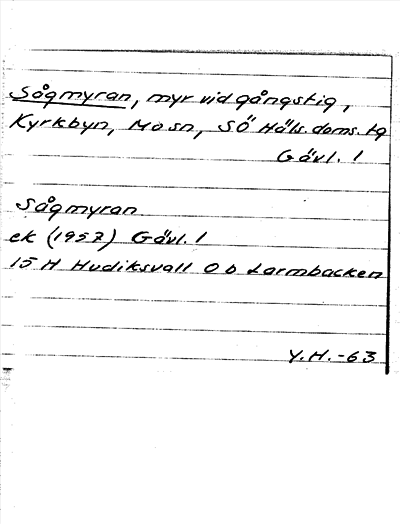 Sågmyran, myr vid gångstig,
Kyrkbyn, Mo sn, SÖ Häls. doms. tg
Gävl. l
Sågmyran
ek (1957) Gävl. l
15 H Hudiksvall 0 b Larmbacken
Y.H.-63